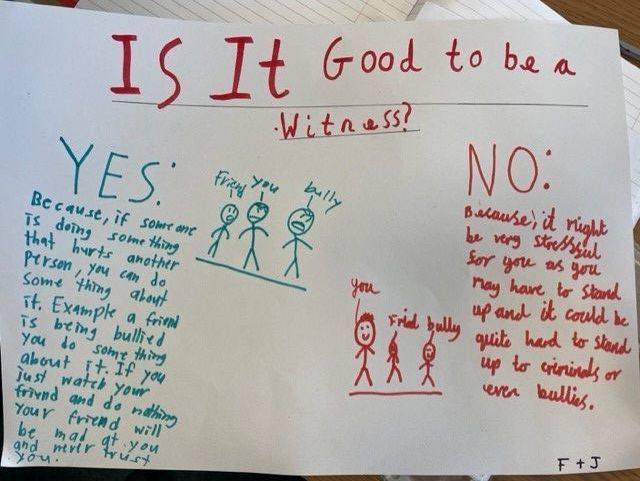 Is It Good to be a
Witness?
YES:
Because, if someone
is doing something
that hurts another
person, you can do
some thing about
it. Example a friend
is being bullied
you do some thing
about it. If you
just watch your
friend and do nothing
your friend will
be mad at you
and never trust
you.
Friend you bully
NO:
Because, it might
be very stressful
for you as you
may have to stand
up and it could be
quite hard to stand
up to criminals or
even bullies.
you
bully
F + J